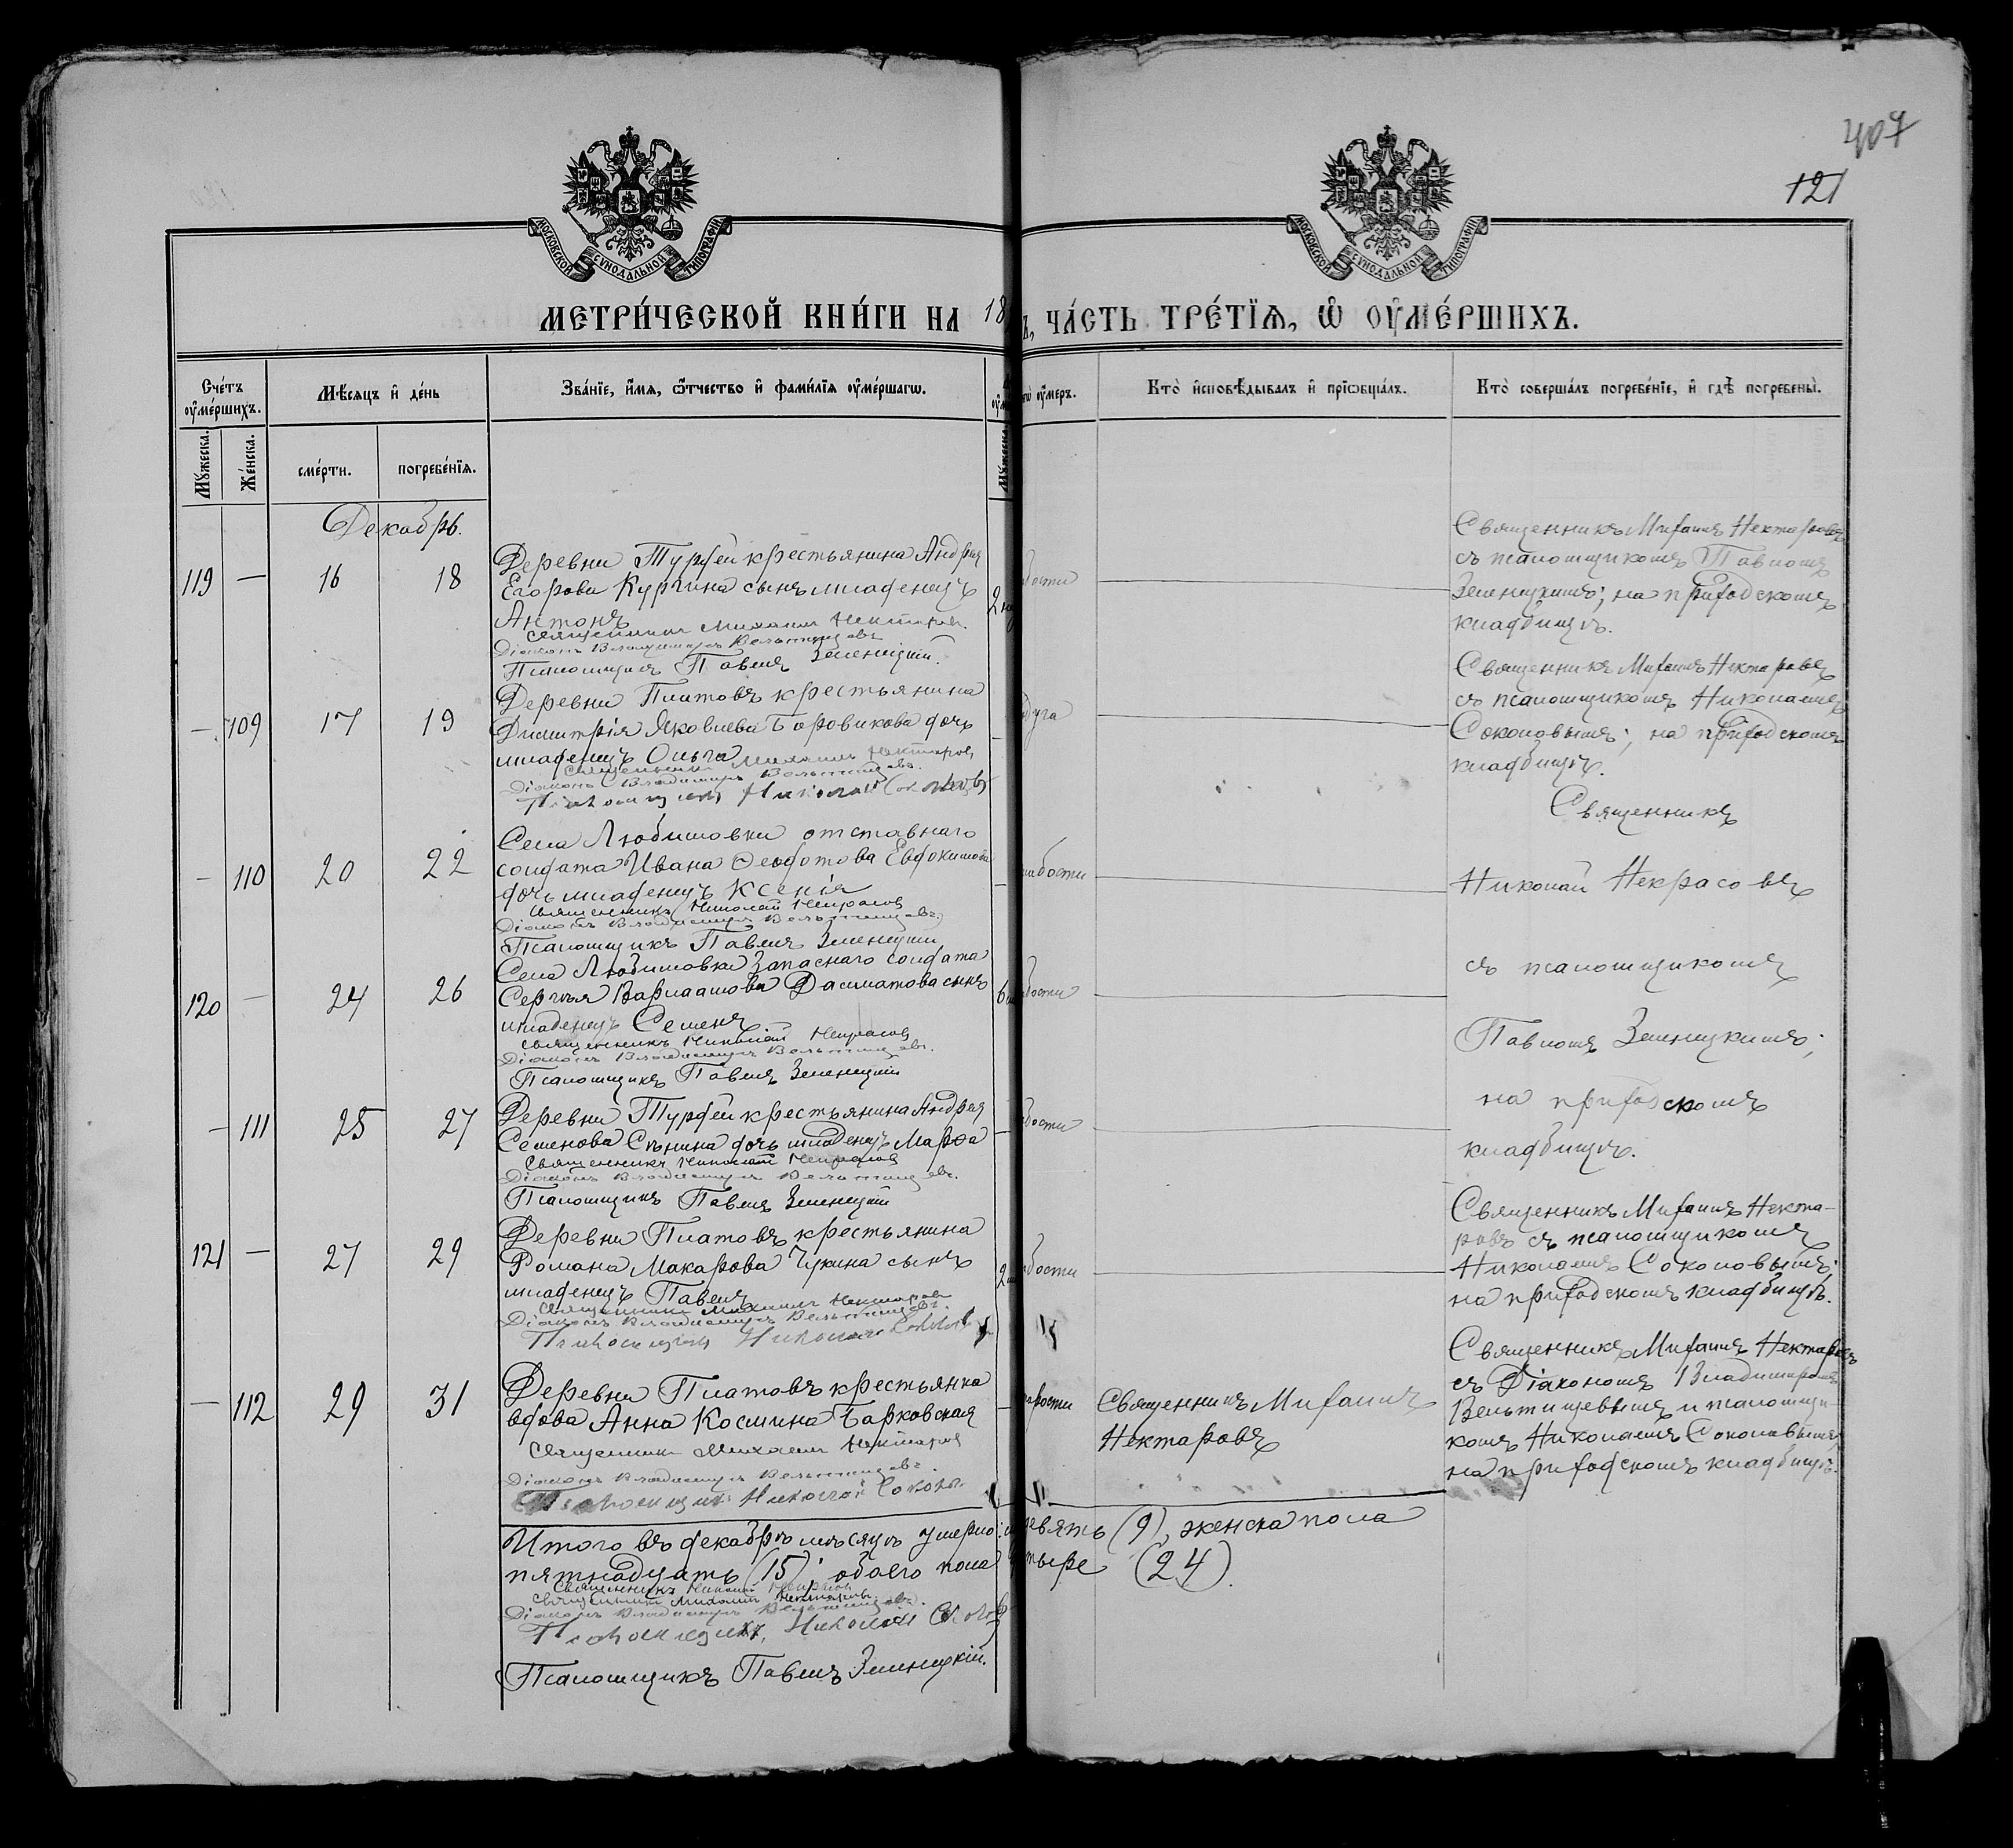 407
121
МОСКОВСКОЙ СѴНОДАЛЬНОЙ ТИПОГРАФІИ
МОСКОВСКОЙ СѴНОДАЛЬНОЙ ТИПОГРАФІИ
МЕТРИ́ЧЕСКОЙ КНИ́ГИ НА 18
Ъ, ЧА́СТЬ ТРЕ́ТЇѦ, Ѡ҆ ОУ҆МЕ́РШИХЪ.
Сче́тъ оу҆ме́ршихъ.
Мꙋ́жеска.
Же́нска.
Мѣ́сѧцъ и҆ де́нь
сме́рти.
погребе́нїѧ.
Зва́нїе, и҆́мѧ, ѻ҆́тчество и҆ фами́лїѧ оу҆ме́ршагѡ.
Мꙋ́жеска.
оу҆́меръ.
Кто̀ и҆сповѣ́дывалъ и҆ прїѡбща́лъ.
Кто̀ соверша́лъ погребе́нїе, и҆ гдѣ̀ погребены̀.
Декабрь.
119 — 16 18
Деревни Турфей крестьянина Андрея
Егорова Кургина сынъ младенецъ
Антонъ
Священникъ Михаилъ Нектаровъ.
Діаконъ Владимиръ Вельтищевъ
Псаломщикъ Павелъ Зеленецкій.
2
бости
Священникъ Михаилъ Нектаровъ
съ псаломщикомъ Павломъ
Зеленецкимъ; на приходскомъ
кладбищѣ.
— 109 17 19
Деревни Платовъ крестьянина
Димитрія Яковлева Боровикова дочь
младенецъ Ольга
Священникъ Михаилъ Нектаровъ
Діаконъ Владимиръ Вельтищевъ.
Псаломщикъ Николай Соколовъ
—
дуга
Священникъ Михаилъ Нектаровъ
съ псаломщикомъ Николаемъ
Соколовымъ; на приходскомъ
кладбищѣ.
— 110 20 22
Села Любимовки отставнаго
солдата Ивана Ѳеодотова Евдокимова
дочь младенецъ Ксенія
Священникъ Николай Некрасовъ
Діаконъ Владимиръ Вельтищевъ.
Псаломщикъ Павелъ Зеленецкій
—
лабости
Священникъ
Николай Некрасовъ
съ псаломщикомъ
Павломъ Зеленецкимъ;
на приходскомъ
кладбищѣ.
120 — 24 26
Села Любимовки запаснаго солдата
Сергѣя Варлаамова Далматова сынъ
младенецъ Семенъ
Священникъ Николай Некрасовъ
Діаконъ Владимиръ Вельтищевъ.
Псаломщикъ Павелъ Зеленецкій
6
бости
— 111 25 27
Деревни Турфей крестьянина Андрея
Семенова Сѣнина дочь младенецъ Марѳа
Священникъ Николай Некрасовъ
Діаконъ Владимиръ Вельтищевъ.
Псаломщикъ Павелъ Зеленецкій
—
бости
121 — 27 29
Деревни Платовъ крестьянина
Романа Макарова Чукина сынъ
младенецъ Павелъ
Священникъ Михаилъ Нектаровъ
Діаконъ Владимиръ Вельтищевъ.
Псаломщикъ Николай Соколовъ
2
бости
Священникъ Михаилъ Некта-
ровъ съ псаломщикомъ
Николаемъ Соколовымъ;
на приходскомъ кладбищѣ.
— 112 29 31
Деревни Платовъ крестьянка
вдова Анна Космина Барковская
Священникъ Михаилъ Нектаровъ
Діаконъ Владимиръ Вельтищевъ.
Псаломщикъ Николай Соколовъ
—
арости
Священникъ Михаилъ
Нектаровъ
Священникъ Михаилъ Нектаровъ
съ Діакономъ Владимиромъ
Вельтищевымъ и псаломщи-
комъ Николаемъ Соколовымъ;
на приходскомъ кладбищѣ.
Итого въ декабрѣ мѣсяцѣ умерло: девять (9), женска пола
пятнадцать (15); обоего пола тыре (24).
Священникъ Николай Некрасовъ
Священникъ Михаилъ Нектаровъ
Діаконъ Владимиръ Вельтищевъ.
Псаломщикъ, Николай Соколов
Псаломщикъ Павелъ Зеленецкій.